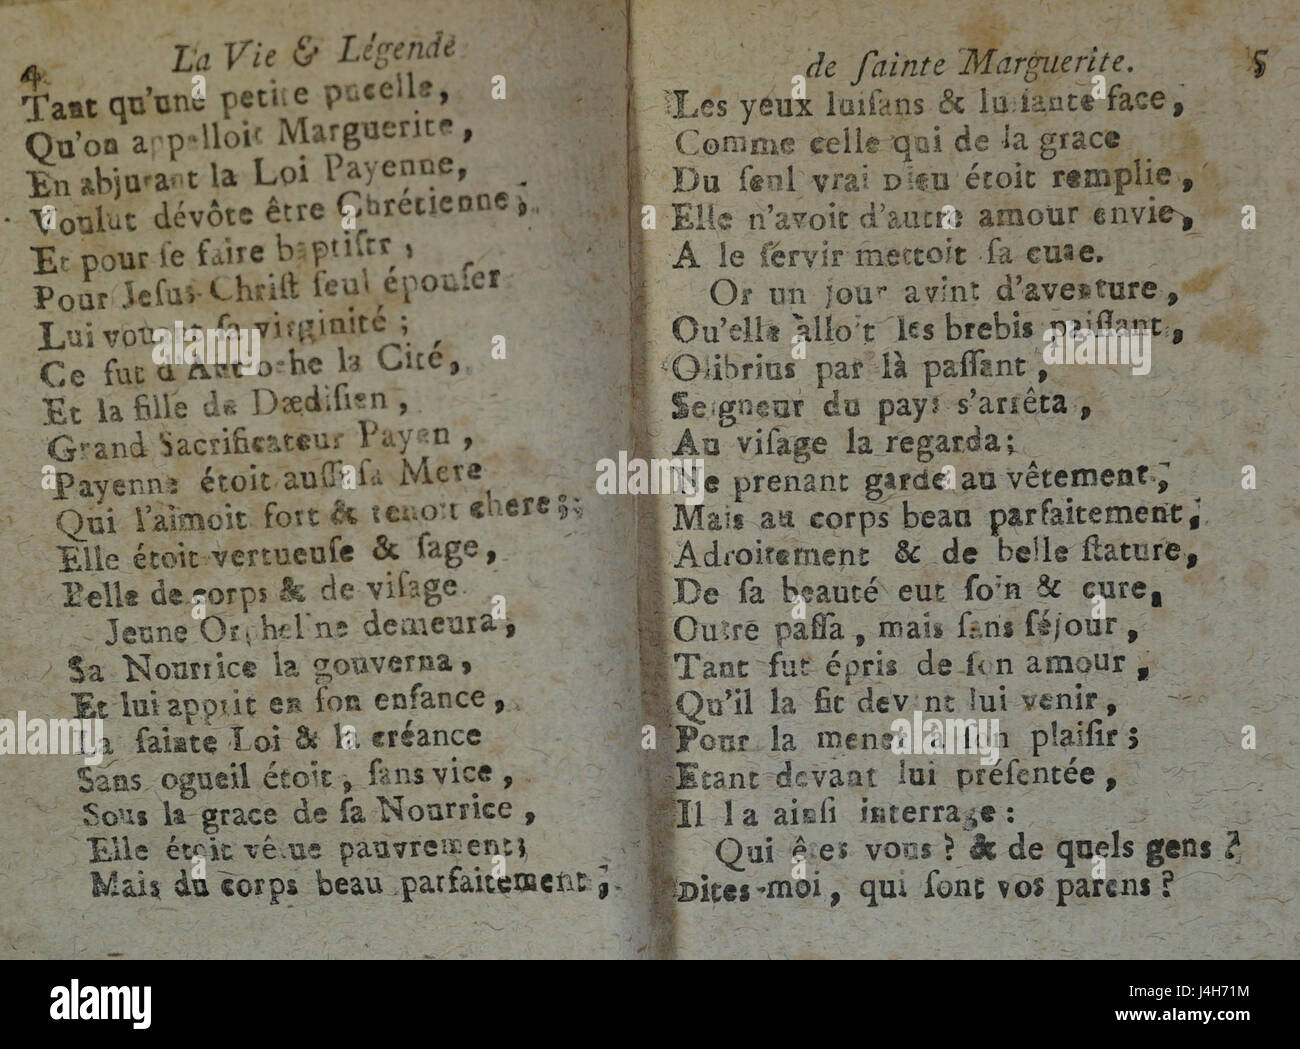 4 La Vie & Légende
Tant qu'une petite pucelle,
Qu'on appelloit Marguerite,
En abjurant la Loi Payenne,
Voulut dévôte être Chrétienne;
Et pour ſe faire baptiſer,
Pour Jeſus-Chriſt ſeul épouſer
Lui vouant ſa virginité;
Ce fut d'Antioche la Cité,
Et la fille de Dædiſien,
Grand Sacrificateur Payen,
Payenne étoit auſſi ſa Mere
Qui l'aimoit fort & tenoit chere;
Elle étoit vertueuſe & ſage,
Belle de corps & de viſage.
Jeune Orpheline demeura,
Sa Nourrice la gouverna,
Et lui apprit en ſon enfance,
La ſainte Loi & la créance
Sans ogueil étoit, ſans vice,
Sous la grace de ſa Nourrice,
Elle étoit vêtue pauvrement;
Mais du corps beau parfaitement;
de ſainte Marguerite. 5
Les yeux luiſans & luiſante face,
Comme celle qui de la grace
Du ſeul vrai DIEU étoit remplie,
Elle n'avoit d'autre amour envie,
A le ſervir mettoit ſa cure.
Or un jour avint d'aventure,
Qu'elle alloit les brebis paiſſant,
Olibrius par là paſſant,
Seigneur du pays s'arrêta,
Au viſage la regarda;
Ne prenant garde au vêtement;
Mais au corps beau parfaitement;
Adroitement & de belle ſtature,
De ſa beauté eut ſoin & cure,
Outre paſſa, mais ſans ſéjour,
Tant fut épris de ſon amour,
Qu'il la fit devant lui venir,
Pour la mener à ſon plaiſir;
Etant devant lui préſentée,
Il l a ainſi interrage:
Qui êtes vous? & de quels gens?
DITES-moi, qui ſont vos parens?
alamy
Image ID: J4H71M
www.alamy.com